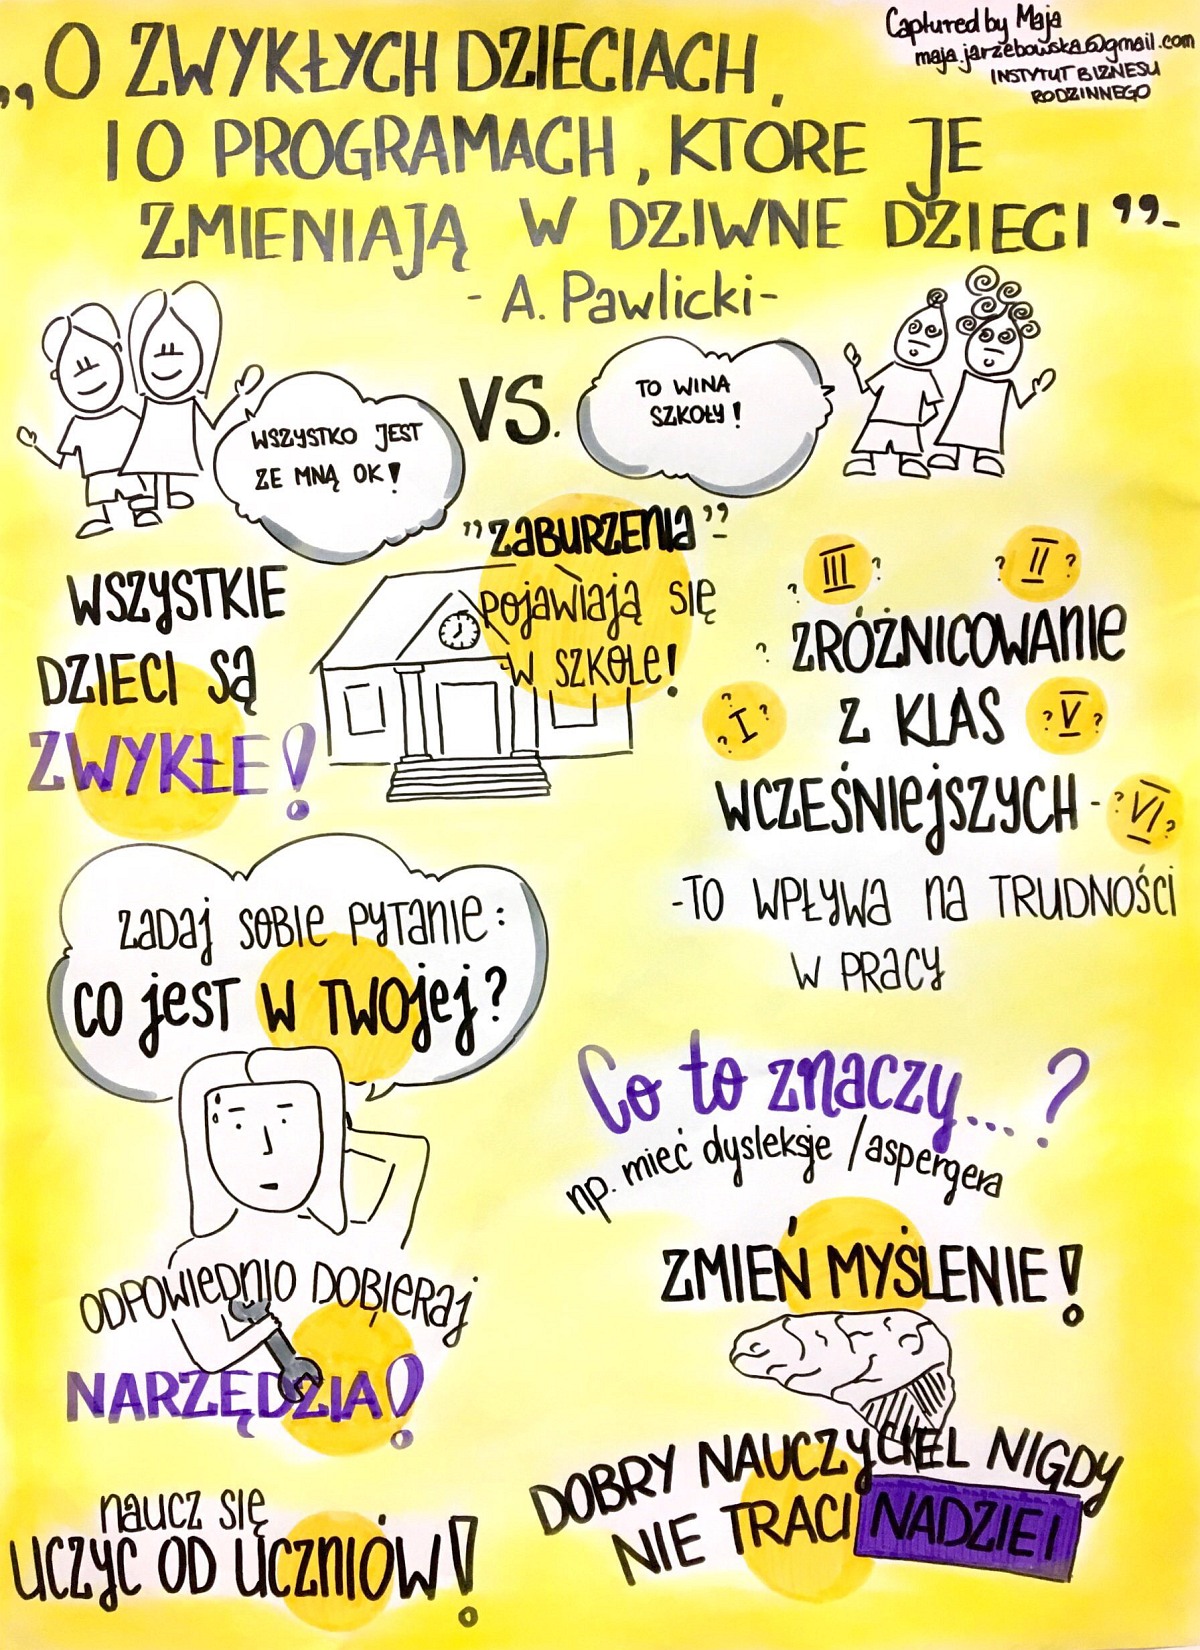 Captured by Maja
maja.jarzebowska@gmail.com
INSTYTUT BIZNESU
RODZINNEGO
„O ZWYKŁYCH DZIECIACH,
I O PROGRAMACH, KTÓRE JE
ZMIENIAJĄ W DZIWNE DZIECI”-
- A. Pawlicki -
WSZYSTKO JEST
ZE MNĄ OK!
VS.
TO WINA
SZKOŁY!
WSZYSTKIE
DZIECI SĄ
ZWYKŁE!
"ZABURZENIA"-
pojawiają się
w SZKOLE!
? III ?
? II ?
ZRÓŻNICOWANIE
?
? I ?
Z KLAS
? V ?
WCZEŚNIEJSZYCH -
? VI ?
-TO WPŁYWA na TRUDNOŚCI
W PRACY
ZADAJ SOBIE PYTANIE:
CO jEST W TWOjej?
ODPOWIEDNIO DOBIERAJ
NARZĘDZIA!
naucz się
UCZYĆ OD UCZNIÓW!
Co to znaczy...?
np. mieć dysleksje / aspergera
ZMIEŃ MYŚLENIE!
DOBRY NAUCZYCIEL NIGDY
NIE TRACI NADZIEI